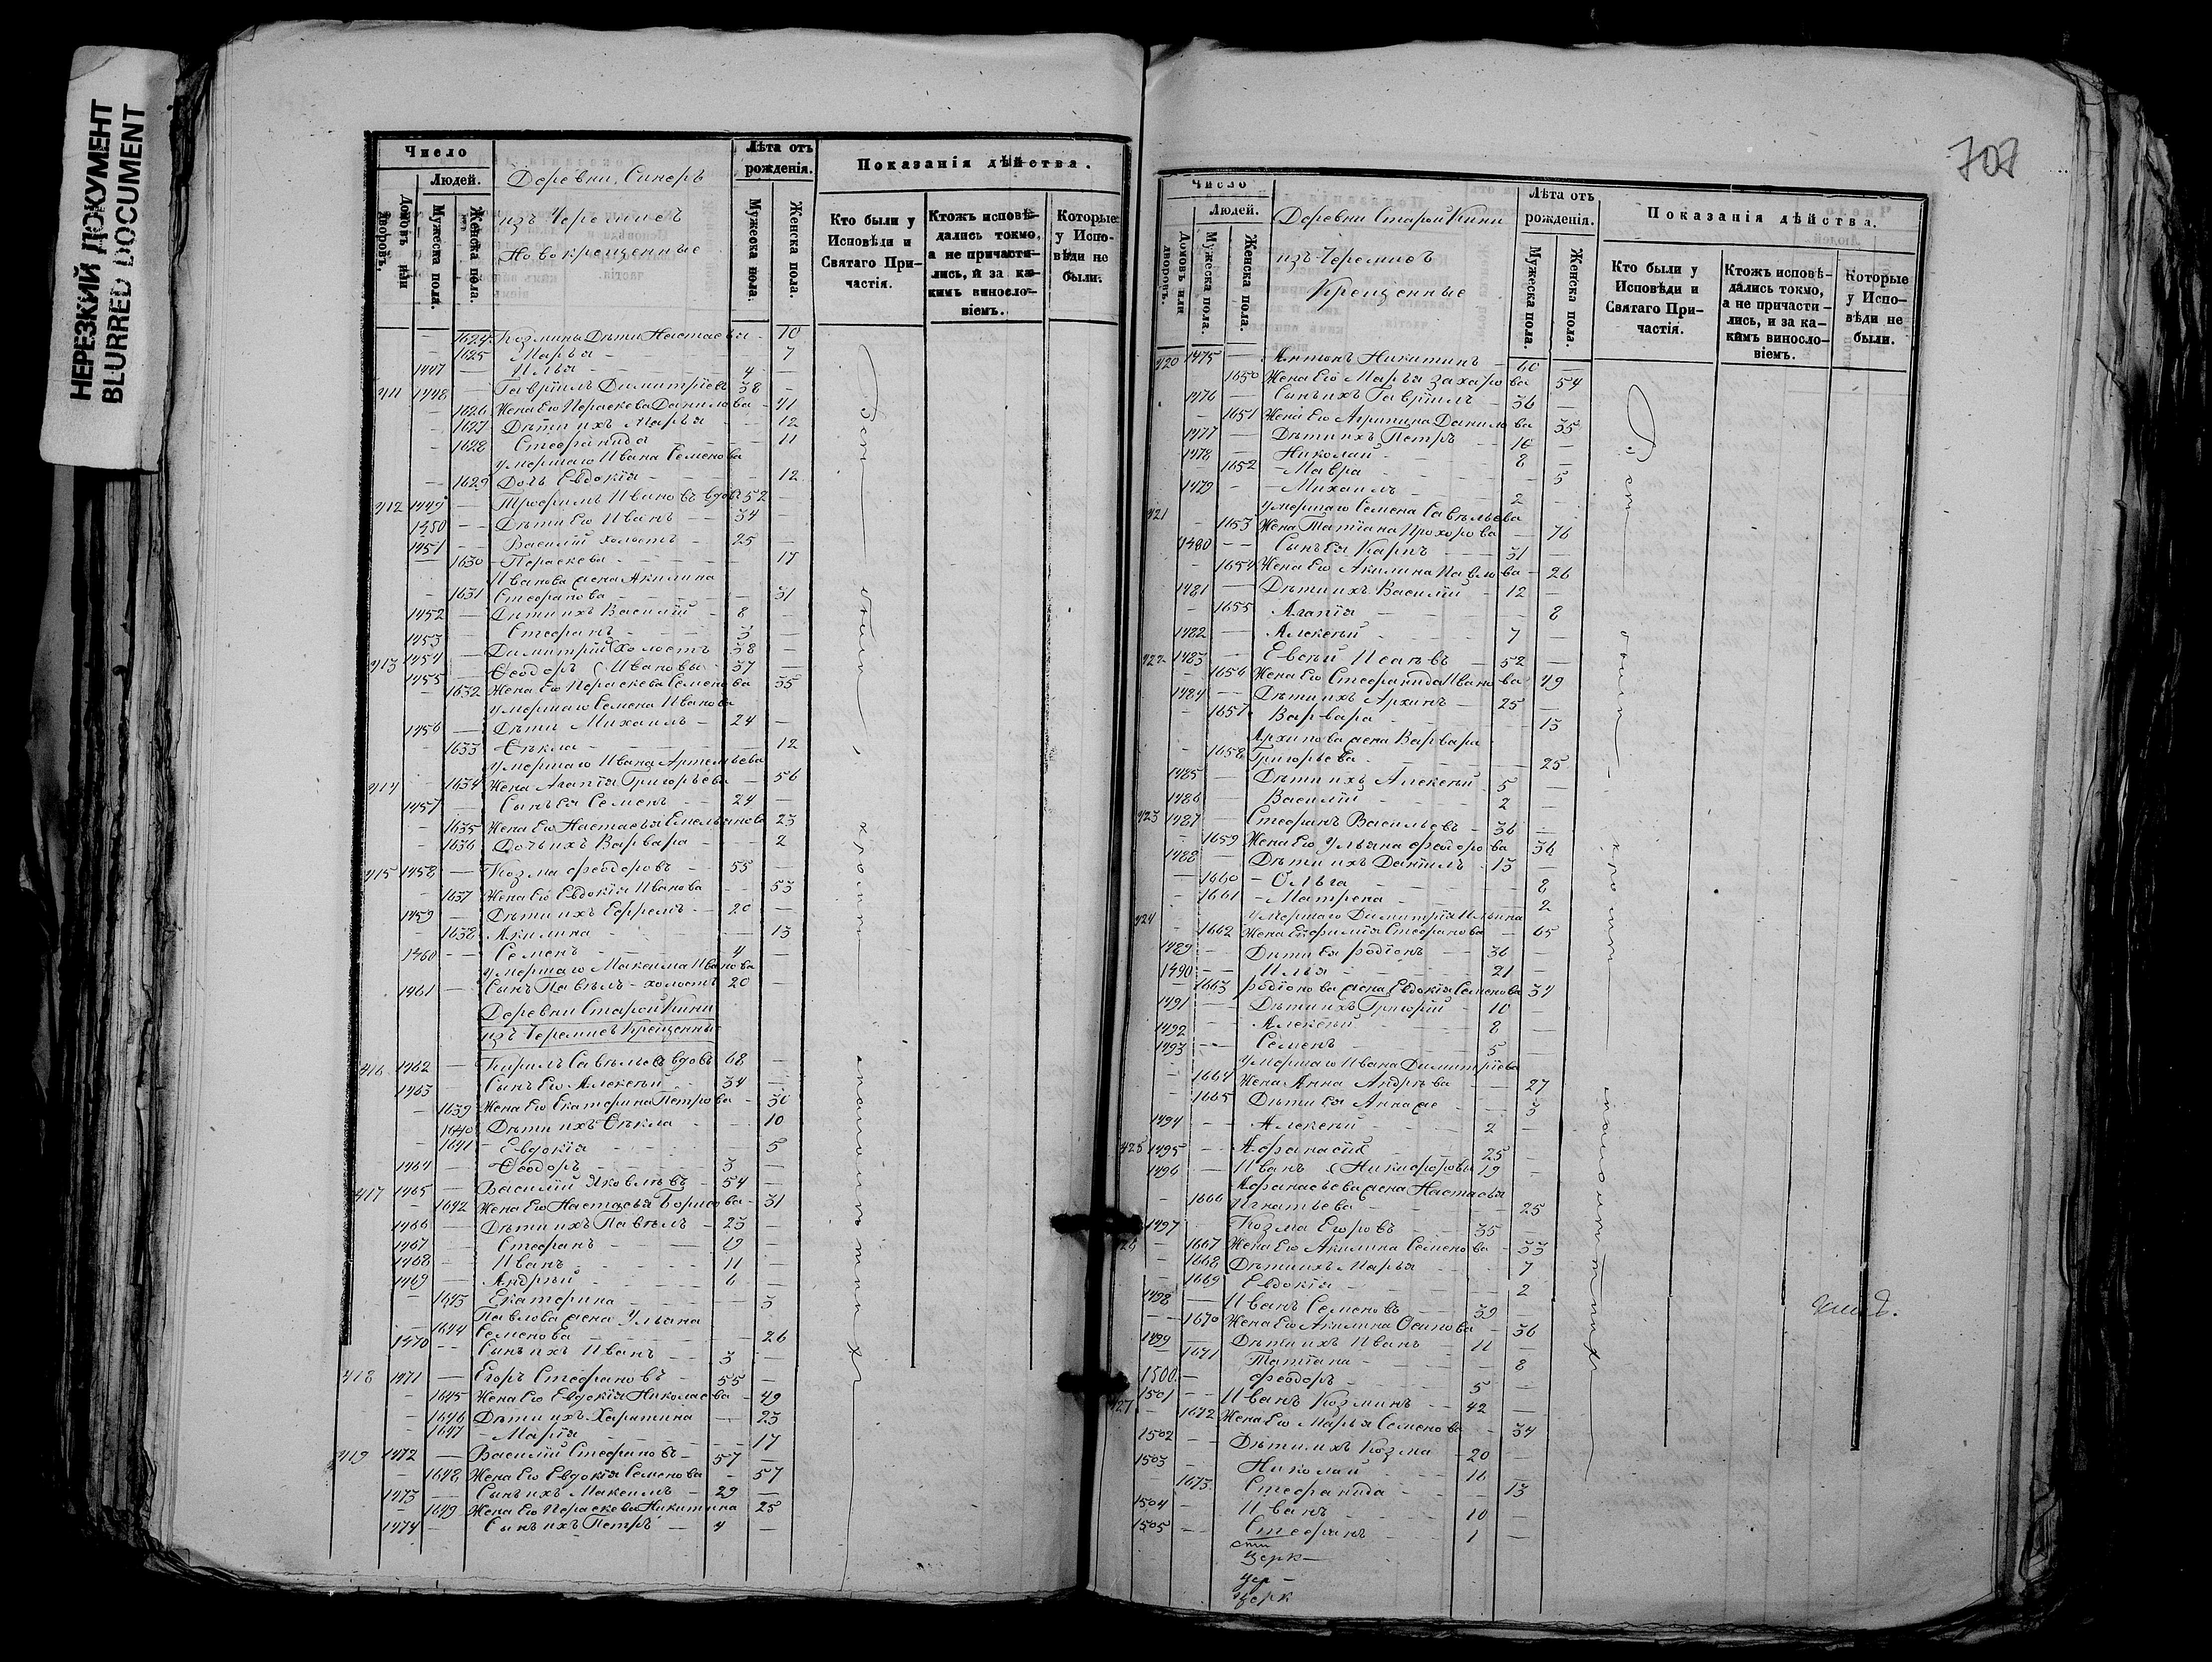 НЕРЕЗКИЙ ДОКУМЕНТ
BLURRED DOCUMENT
Число
Людей.
Домовъ или дворовъ.
Мужеска пола.
Женска пола.
Деревни Синеръ
изъ Черемисъ
Новокрещенные
Лѣта отъ рожденія.
Мужеска пола.
Женска пола.
Показанія дѣйства.
Кто были у Исповѣди и Святаго Причастія.
Ктожъ исповѣдались токмо, а не причастились, и за какимъ винословіемъ.
Которые у Исповѣди не были.
— 1624 Козмины Дѣти Настасья - 10
— 1625 Марья - 7
1447 — Илья - 4 —
411 1448 — Гавріилъ Димитріевъ 38 -
- 1626 Жена Его Параскева Данилова - 41
- 1627 Дѣти ихъ Марья - 12
- 1628 Стефанида - 11
умершаго Ивана Семенова
- 1629 Дочь Евдокія - 12
412 1449 — Трофимъ Ивановъ вдовъ 52 —
1450 — Дѣти Его Иванъ - 34 —
1451 — Василій холостъ - 25 —
— 1630 Параскева - 17
Иванова жена Акилина
- 1631 Стефанова - 31
1452 — Дѣти ихъ Василій - 8 -
1453 — Стефанъ - 3 —
413 1454 — Димитрій холостъ 38 —
1455 — Ѳеодоръ Ивановы - 37 —
- 1632 Жена Его Параскева Семенова 35
умершаго Семена Иванова
1456 — Дѣти Михаилъ - 24 -
- 1633 Ѳекла - 12
умершаго Ивана Артемьева
414 - 1634 Жена Агапія Григорьева — 56
1457 — Сынъ Ея Семенъ - 24 —
- 1635 Жена Его Настасья Емельянова 23
- 1636 Дочь ихъ Варвара - 2
415 1458 — Козма Ѳеодоровъ - 55 —
- 1637 Жена Его Евдокія Иванова - 53
1459 — Дѣти ихъ Ефремъ - 20 —
- 1638 Акилина - 13
1460 — Семенъ - 4 —
умершаго Максима Иванова
1461 — Сынъ Павелъ - холостъ 20 -
Деревни Старой Кини
изъ Черемисъ Крещенные
416 1462 — Кирилъ Савельевъ вдовъ 68 —
1463 — Сынъ Его Алексѣй - 34 —
- 1639 Жена Его Екатерина Петрова - 30
1640 Дѣти ихъ Ѳекла - 10
- 1641 Евдокія - 5
1464 — Ѳеодоръ - 3 —
417 1465 — Василій Яковлевъ - 54 —
- 1642 Жена Его Настасья Борисова - 31
1466 — Дѣти ихъ Павелъ - 23 —
1467 — Стефанъ - 19 —
1468 — Иванъ - 11 —
1469 — Андрей - 6 —
- 1643 Екатерина - 3
Павлова жена Ульяна
- 1644 Семенова - 26
1470 — Сынъ ихъ Иванъ - 3 —
418 1471 — Егоръ Стефановъ - 55 -
- 1645 Жена Его Евдокія Николаева - 49
- 1646 Дѣти ихъ Харитина — 23
1647 - Марія - 17
419 1472 — Василій Стефановъ - 57 —
- 1648 Жена Его Евдокія Семенова - 57
1473 — Сынъ ихъ Максимъ - 29 —
- 1649 Жена Его Параскева Никитина 25
1474 — Сынъ ихъ Петръ - 4 —
708
Число
Людей.
Домовъ или дворовъ.
Мужеска пола.
Женска пола.
Деревни Старой Кини
изъ Черемисъ
Крещенные
Лѣта отъ рожденія.
Мужеска пола.
Женска пола.
Показанія дѣйства.
Кто были у Исповѣди и Святаго Причастія.
Ктожъ исповѣдались токмо, а не причастились, и за какимъ винословіемъ.
Которые у Исповѣди не были.
420 1475 — Антонъ Никитинъ - 60 —
1650 Жена Его Марья Захарова 54
1476 — Сынъ ихъ Гавріилъ - 36
- 1651 Жена Его Агрипина Данилова 35
1477 — Дѣти ихъ Петръ - 16 —
1478 — Николай - 8 —
- 1652 Мавра - 5
1479 - Михаилъ - 2 -
421 умершаго Семена Савельева
- 1653 Жена Татіана Прохорова — 76
1480 — Сынъ Ея Карпъ - 31 —
- 1654 Жена Его Акилина Павлова - 26
1481 — Дѣти ихъ Василій - 12 —
- 1655 Агапія - 8
1482 — Алексѣй - 7 —
422 1483 — Евсѣй Исаевъ - 52 —
- 1656 Жена Его Стефанида Иванова 49
1484 — Дѣти ихъ Архипъ - 25 —
- 1657 Варвара - 13
Архипова жена Варвара
- 1658 Григорьева - 25
1485 — Дѣти ихъ Алексѣй 5 —
1486 Василій - 2 —
423 1487 — Стефанъ Васильевъ - 36 —
- 1659 Жена Его Ульяна Ѳеодорова 36
1488 — Дѣти ихъ Даніилъ 13 —
— 1660 - Ольга - 8
- 1661 - Матрена - 2
424 умершаго Димитрія Ильина
- 1662 Жена Евфимія Стефанова - 65
1489 — Дѣти Ея Родіонъ - 36 —
1490 — Илья - 21 —
- 1663 Родіонова жена Евдокія Семенова 34
1491 — Дѣти ихъ Григорій - 10 —
1492 — Алексѣй - 8 —
1493 — Семенъ - 5 —
умершаго Ивана Димитріева
- 1664 Жена Анна Андреева - 27
- 1665 Дѣти Ея Анна же - 3
1494 — Алексѣй - 2 —
425 1495 — Афанасій - 25 —
1496 — Иванъ Никифоровы 19 -
Афанасьева жена Настасья
- 1666 Игнатьева - 25
1497 Козма Егоровъ - 35 —
26 - 1667 Жена Его Акилина Семенова - 33
- 1668 Дѣти ихъ Марья - 7
- 1669 Евдокія - 2
1498 — Иванъ Семеновъ - 39 —
- 1670 Жена Его Акилина Осипова - 36
1499 — Дѣти ихъ Иванъ - 11 —
- 1671 Татіана - 8
1500 — Ѳеодоръ - 5 —
427 1501 — Иванъ Козминъ - 42 —
1672 Жена Его Марья Семенова - 34
1502 — Дѣти ихъ Козма - 20 —
1503 - Николай - 16 —
- 1673 Стефанида - 13
1504 - Иванъ - 10 —
1505 — Стефанъ - 1 —
церк—
цер -
церк